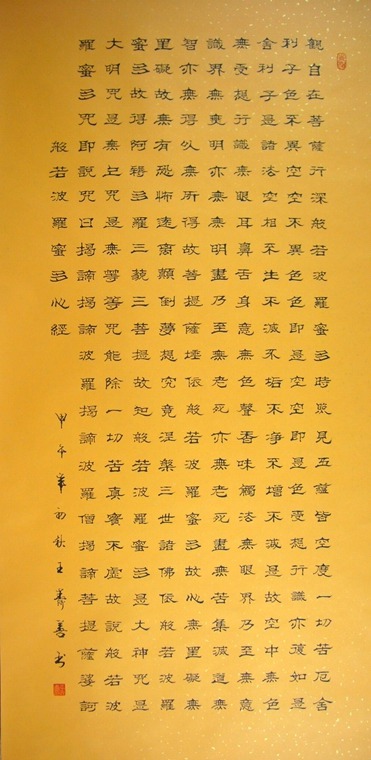 觀自在菩薩行深般若波羅蜜多時照見五蘊皆空度一切苦厄舍
利子色不異空空不異色色即是空空即是色受想行識亦復如是
舍利子是諸法空相不生不滅不垢不淨不增不減是故空中無色
無受想行識無眼耳鼻舌身意無色聲香味觸法無眼界乃至無意
識界無無明亦無無明盡乃至無老死亦無老死盡無苦集滅道無
智亦無得以無所得故菩提薩埵依般若波羅蜜多故心無罣礙無
罣礙故無有恐怖遠離顛倒夢想究竟涅槃三世諸佛依般若波羅
蜜多故得阿耨多羅三藐三菩提故知般若波羅蜜多是大神咒是
大明咒是無上咒是無等等咒能除一切苦真實不虛故說般若波
羅蜜多咒即說咒曰揭諦揭諦波羅揭諦波羅僧揭諦菩提薩婆訶
般若波羅蜜多心經
甲午年初秋王善书